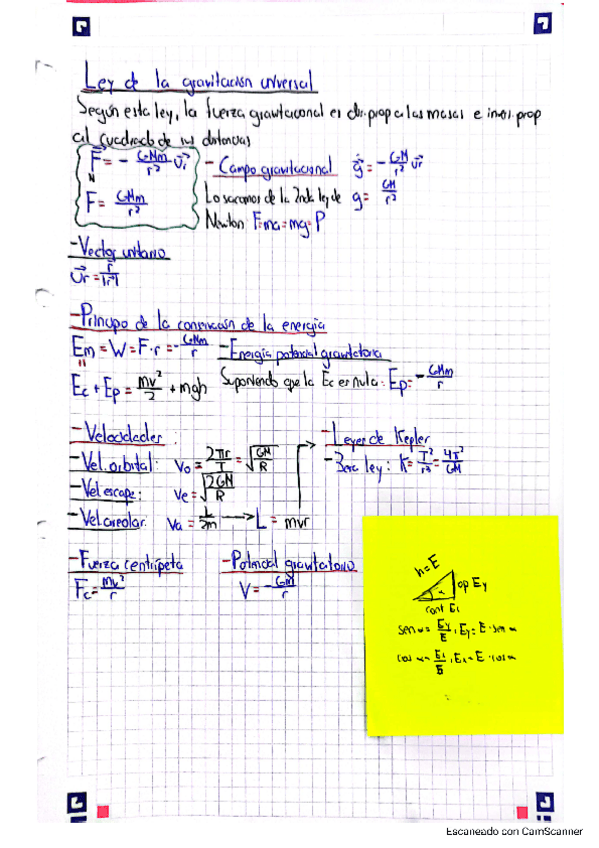 Ley de la gravitación universal
Según esta ley, la fuerza gravitacional es dir. prop a las masas e invers. prop
al cuadrado de sus distancias
F⃗ = - GMm/r² u⃗r
N
F = GMm/r²
- Campo gravitacional g⃗ = - GM/r² u⃗r
Lo sacamos de la 2nda ley de g = GM/r²
Newton F=ma=mg=P
- Vector unitario
u⃗r = r⃗/|r⃗|
- Principio de la conservación de la energía
Em = W = F·r = - GMm/r
- Energía potencial gravitatoria
Ec + Ep = mv²/2 + mgh
Suponiendo que la Ec es nula: Ep = - GMm/r
- Velocidades:
- Vel. orbital: Vo = 2πr/T = √GM/R
- Vel escape: Ve = √2GM/R
- Vel. areolar: Va = L/2m → L = mvr
- Leyes de Kepler
- 3era ley: K = T²/r³ = 4π²/GM
- Fuerza centrípeta
Fc = mv²/r
- Potencial gravitatorio
V = - GM/r
h = E
op Ey
α
cont Ex
sen α = Ey/E, Ey = E · sen α
cos α = Ex/E, Ex = E · cos α
Escaneado con CamScanner